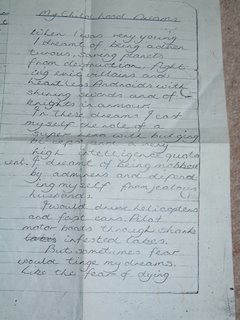 My Childhood Dreams
When I was very young
I dreamt of being adven
turous, saving planets
from destruction, fight-
ing evil villains and
heartless Androids with
shining swords and of
knights in armour.
In these dreams I cast
myself the role of a
super hero with bulging
biceps and a very
high intelligence quota
I dreamt of being
by admirers and defend
ing myself from jealous
husbands.
I would drive helicopters
and fast cars. Pilot
motor boats through shark
infested lakes.
But sometimes fear
would tinge my dreams.
Like the fear of dying